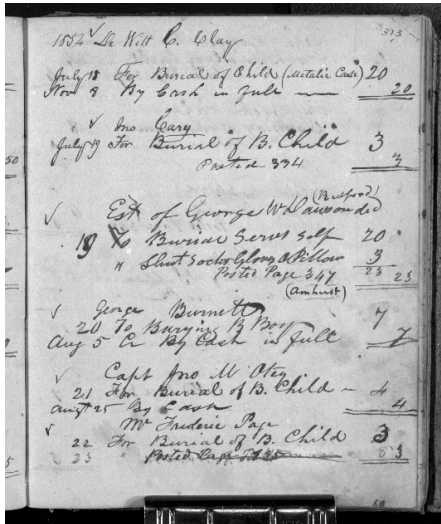 313
1852 De Witt C. Clay
July 18 For Burial of Child (Metalic Case) 20
Nov 8 By Cash in full — 20
Jno Cary
July 19 For Burial of B. Child 3
Posted 334 3
(Bedford)
Est of George W Dawson decd
19 To Burial Servt self 20
" Shirt Socks Gloves & Pillow 3
Posted Page 347 23 23
(Amherst)
George Burnett 7
20 To Burying B Boy
Aug 5 Cr By Cash in full 7
Capt Jno M Otey
21 For Burial of B. Child - 4
Augst 25 By Cash 4
Mr Frederic Page
22 For Burial of B. Child 3
23 " Posted Page 3